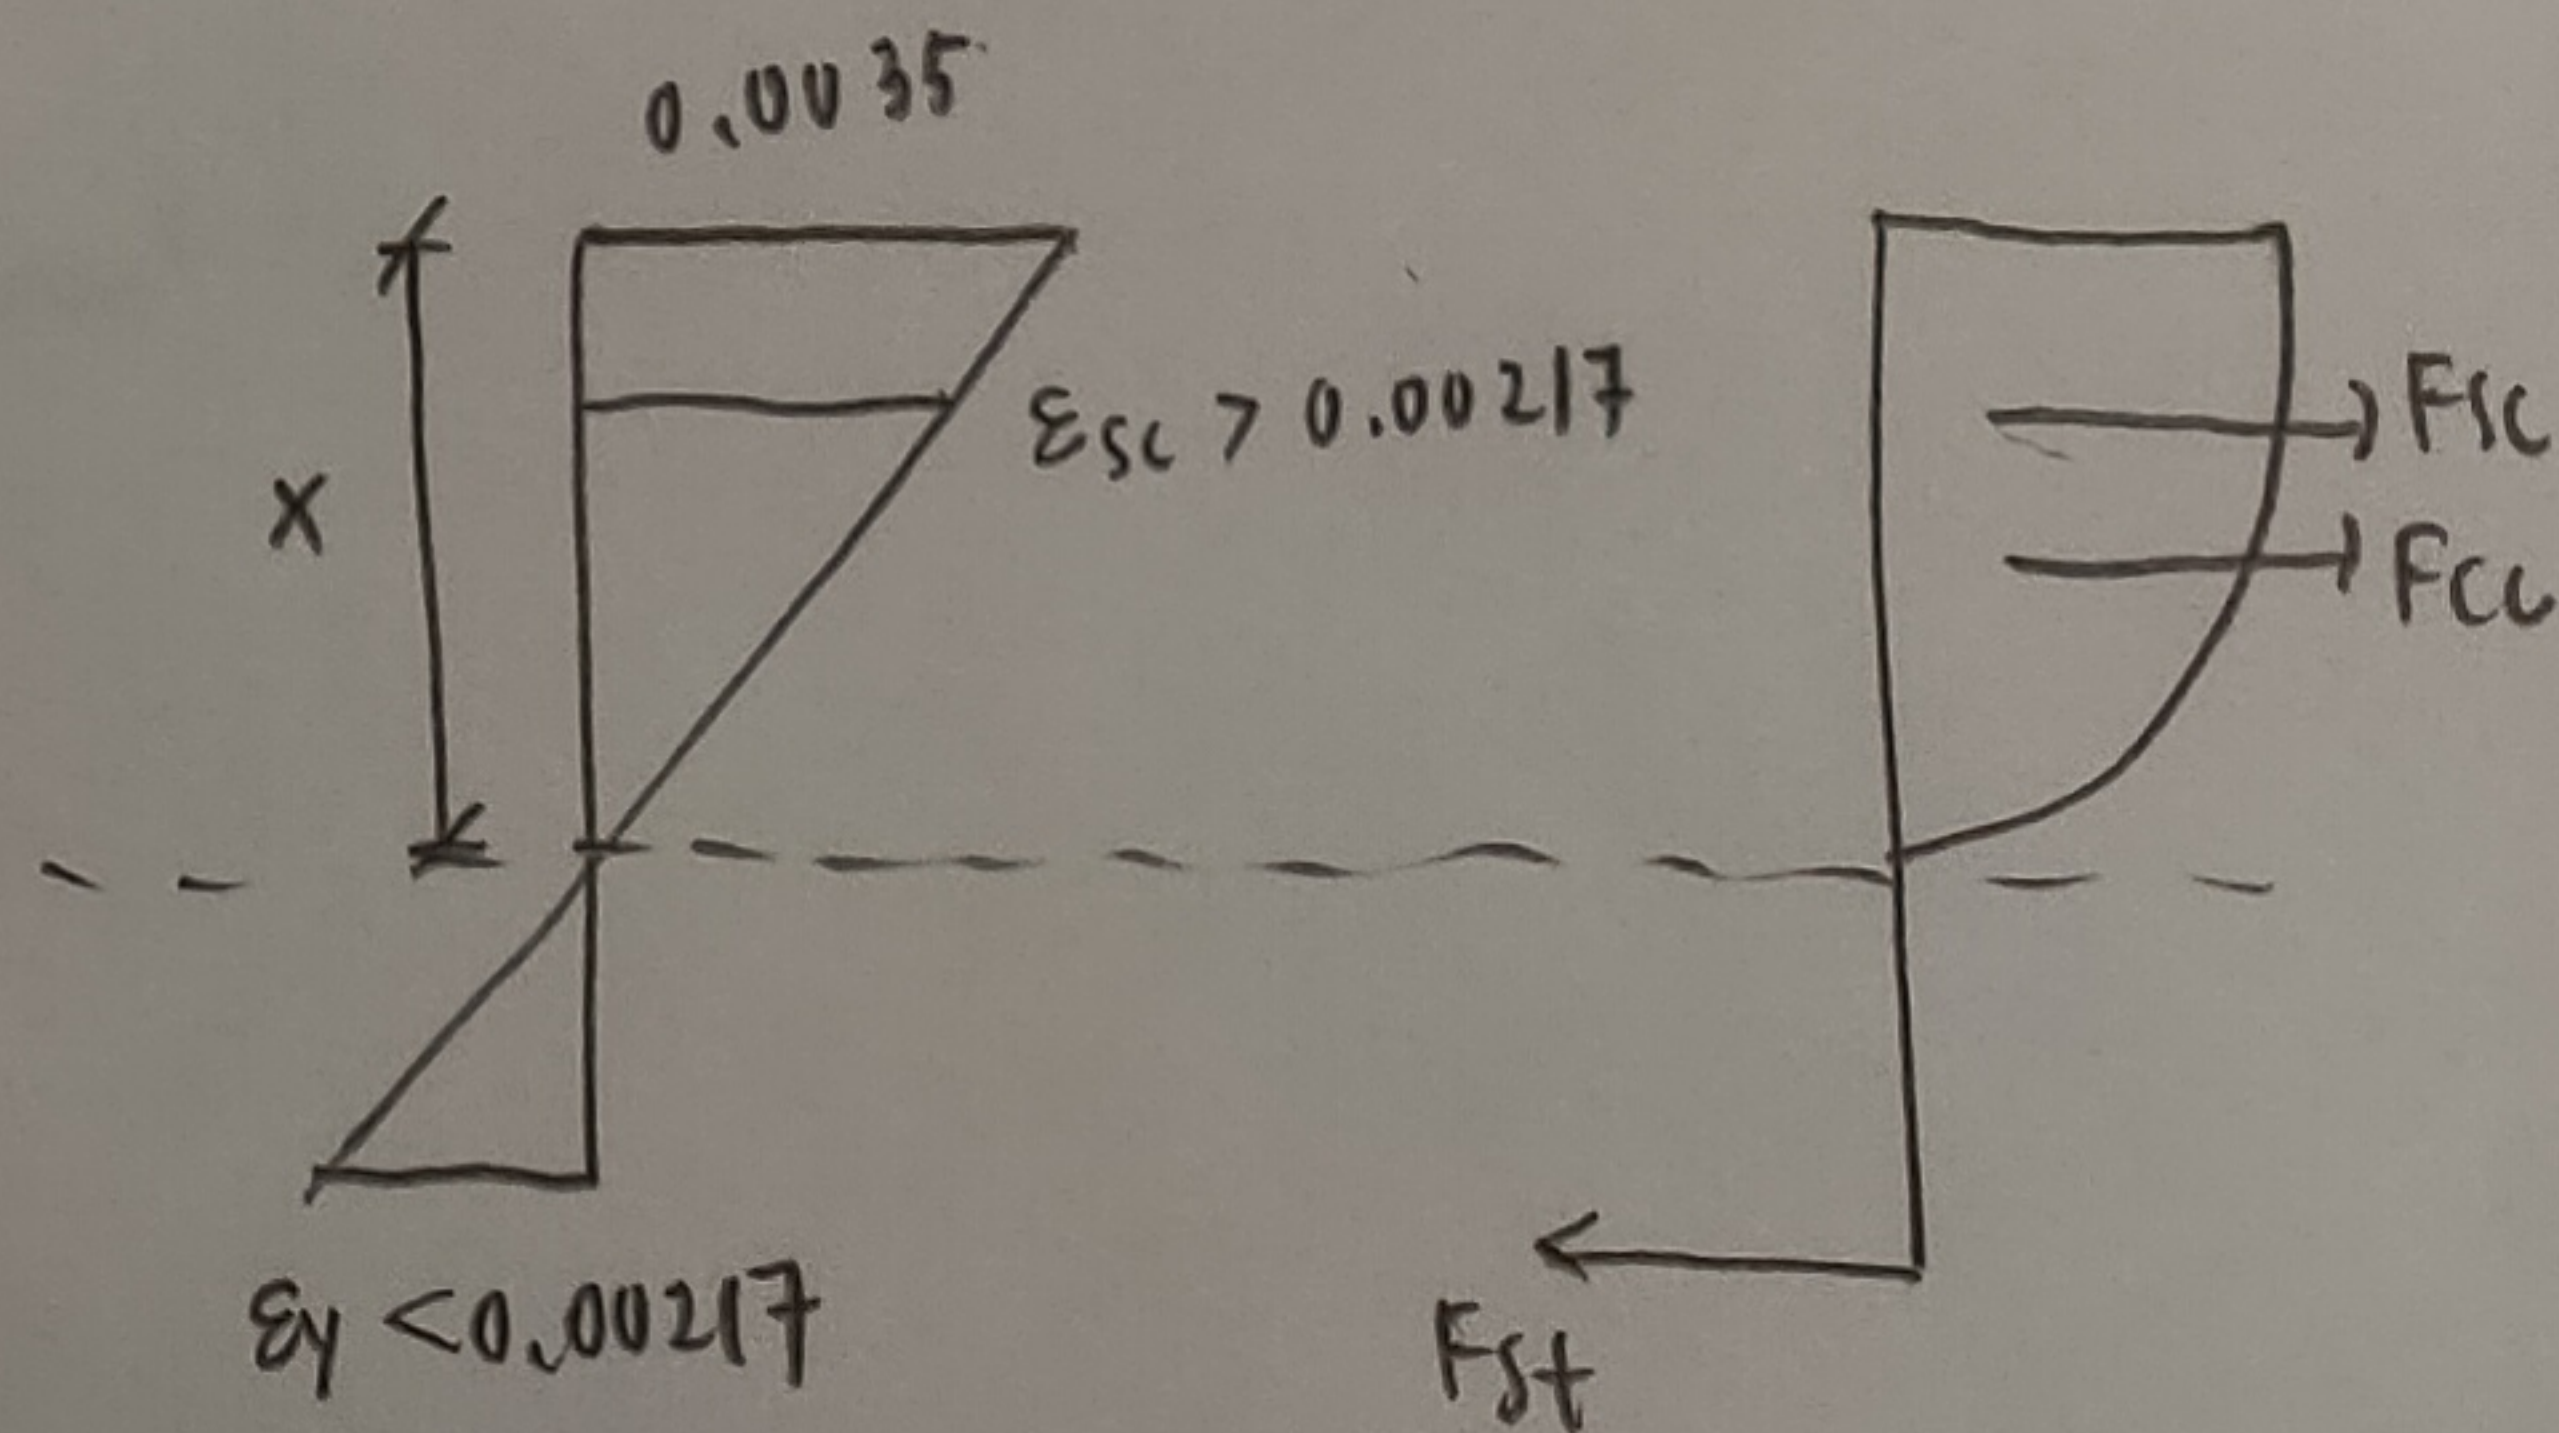 0.0035
x
εsc > 0.00217
Fsc
Fcc
εy < 0.00217
Fst